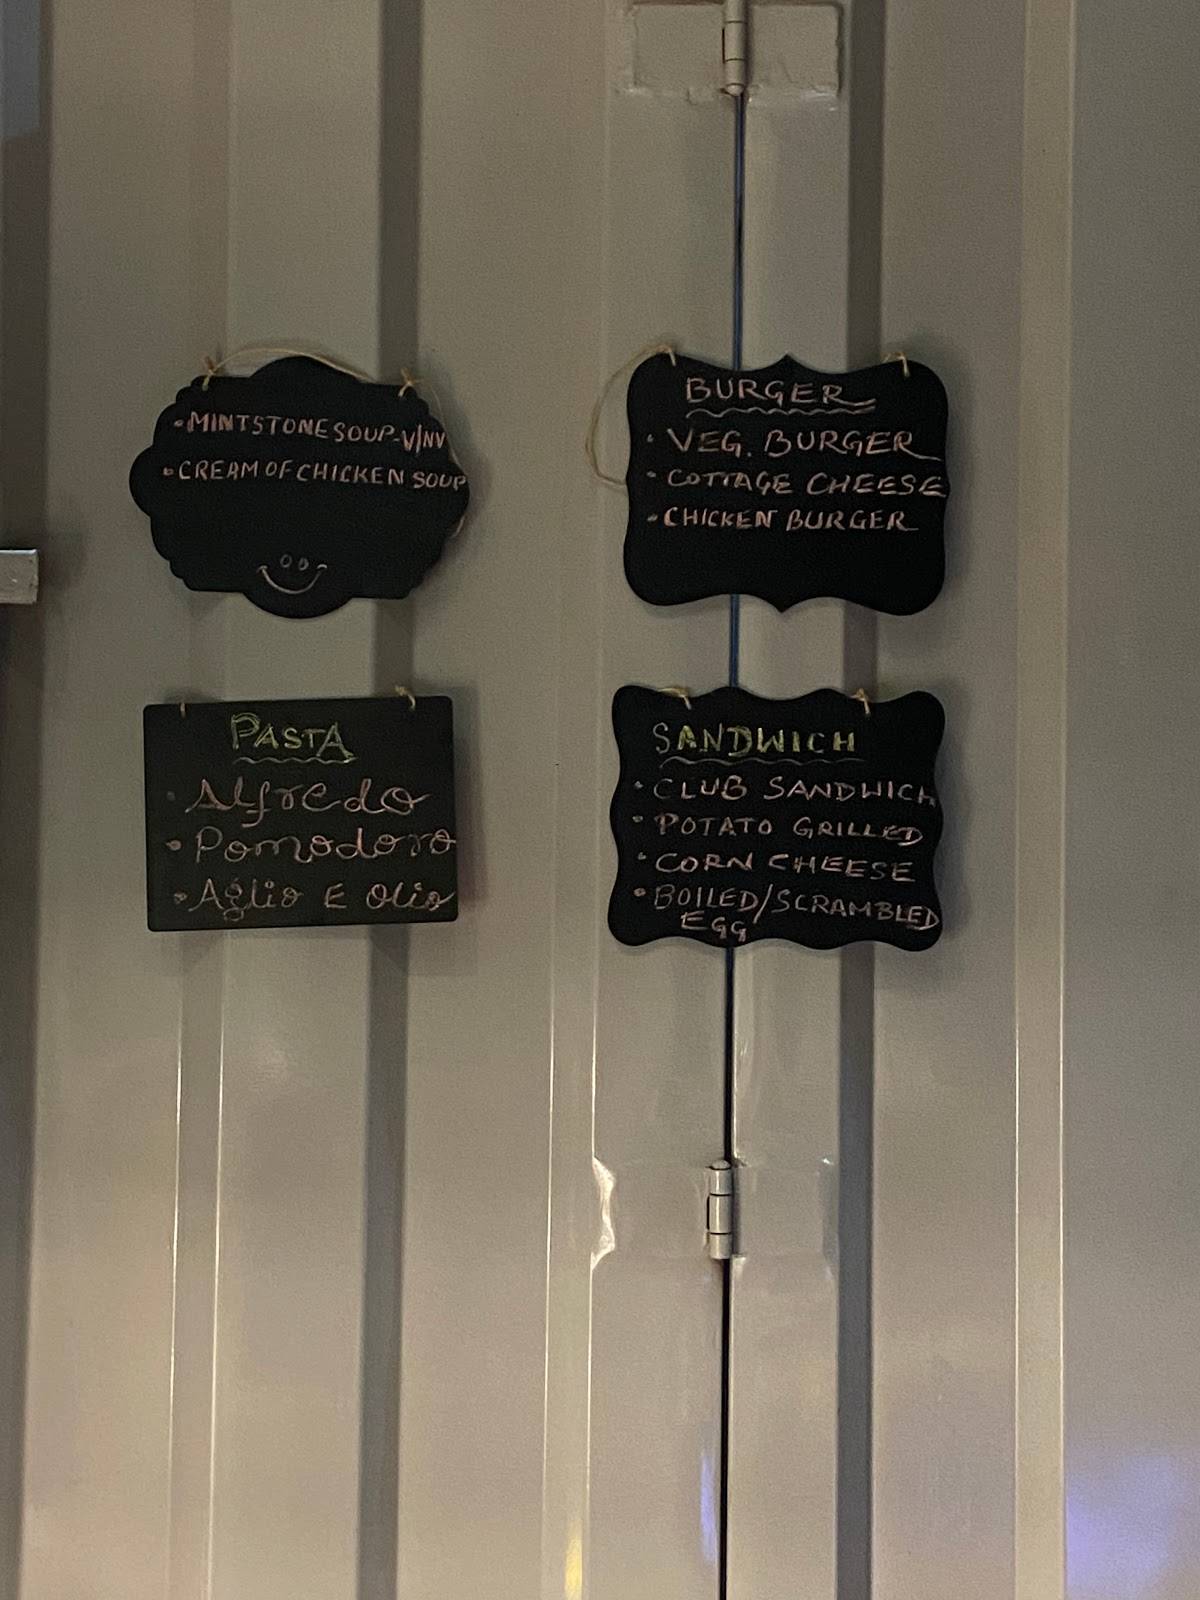 • MINTSTONE SOUP-V/NV
• CREAM OF CHICKEN SOUP
BURGER
• VEG. BURGER
• COTTAGE CHEESE
• CHICKEN BURGER
PASTA
• Alfredo
• Pomodoro
• Aglio E Olio
SANDWICH
• CLUB SANDWICH
• POTATO GRILLED
• CORN CHEESE
• BOILED/SCRAMBLED
EGG